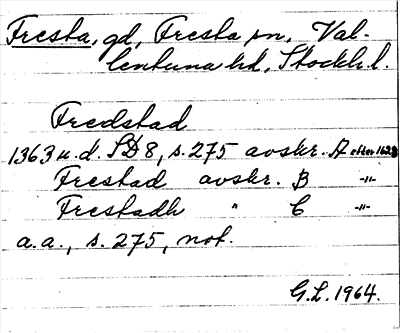 Fresta, gd, Fresta sn, Val-
lentuna hd, Stockh. l.
Fredstad
1363 u.d. SD 8, s. 275 avskr. A efter 1628
Frestad avskr. B -"-
Frestadh " C -"-
a.a., s. 275, not.
G.L. 1964.